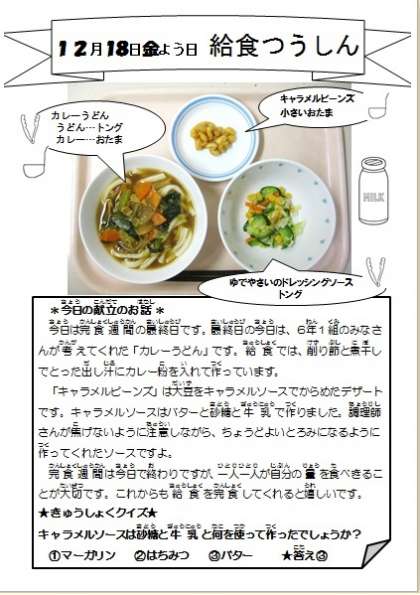 12月18日金よう日 給食つうしん
カレーうどん
うどん…トング
カレー…おたま
キャラメルビーンズ
小さいおたま
MILK
ゆでやさいのドレッシングソース
トング
＊今日の献立のお話＊
今日は完食週間の最終日です。最終日の今日は、6年1組のみなさ
んが考えてくれた「カレーうどん」です。給食では、削り節と煮干し
でとった出し汁にカレー粉を入れて作っています。
「キャラメルビーンズ」は大豆をキャラメルソースでからめたデザート
です。キャラメルソースはバターと砂糖と牛乳で作りました。調理師
さんが焦げないように注意しながら、ちょうどよいとろみになるように
作ってくれたソースですよ。
完食週間は今日で終わりですが、一人一人が自分の量を食べきるこ
とが大切です。これからも給食を完食してくれると嬉しいです。
★きゅうしょくクイズ★
キャラメルソースは砂糖と牛乳と何を使って作ったでしょうか？
①マーガリン ②はちみつ ③バター ★答え③